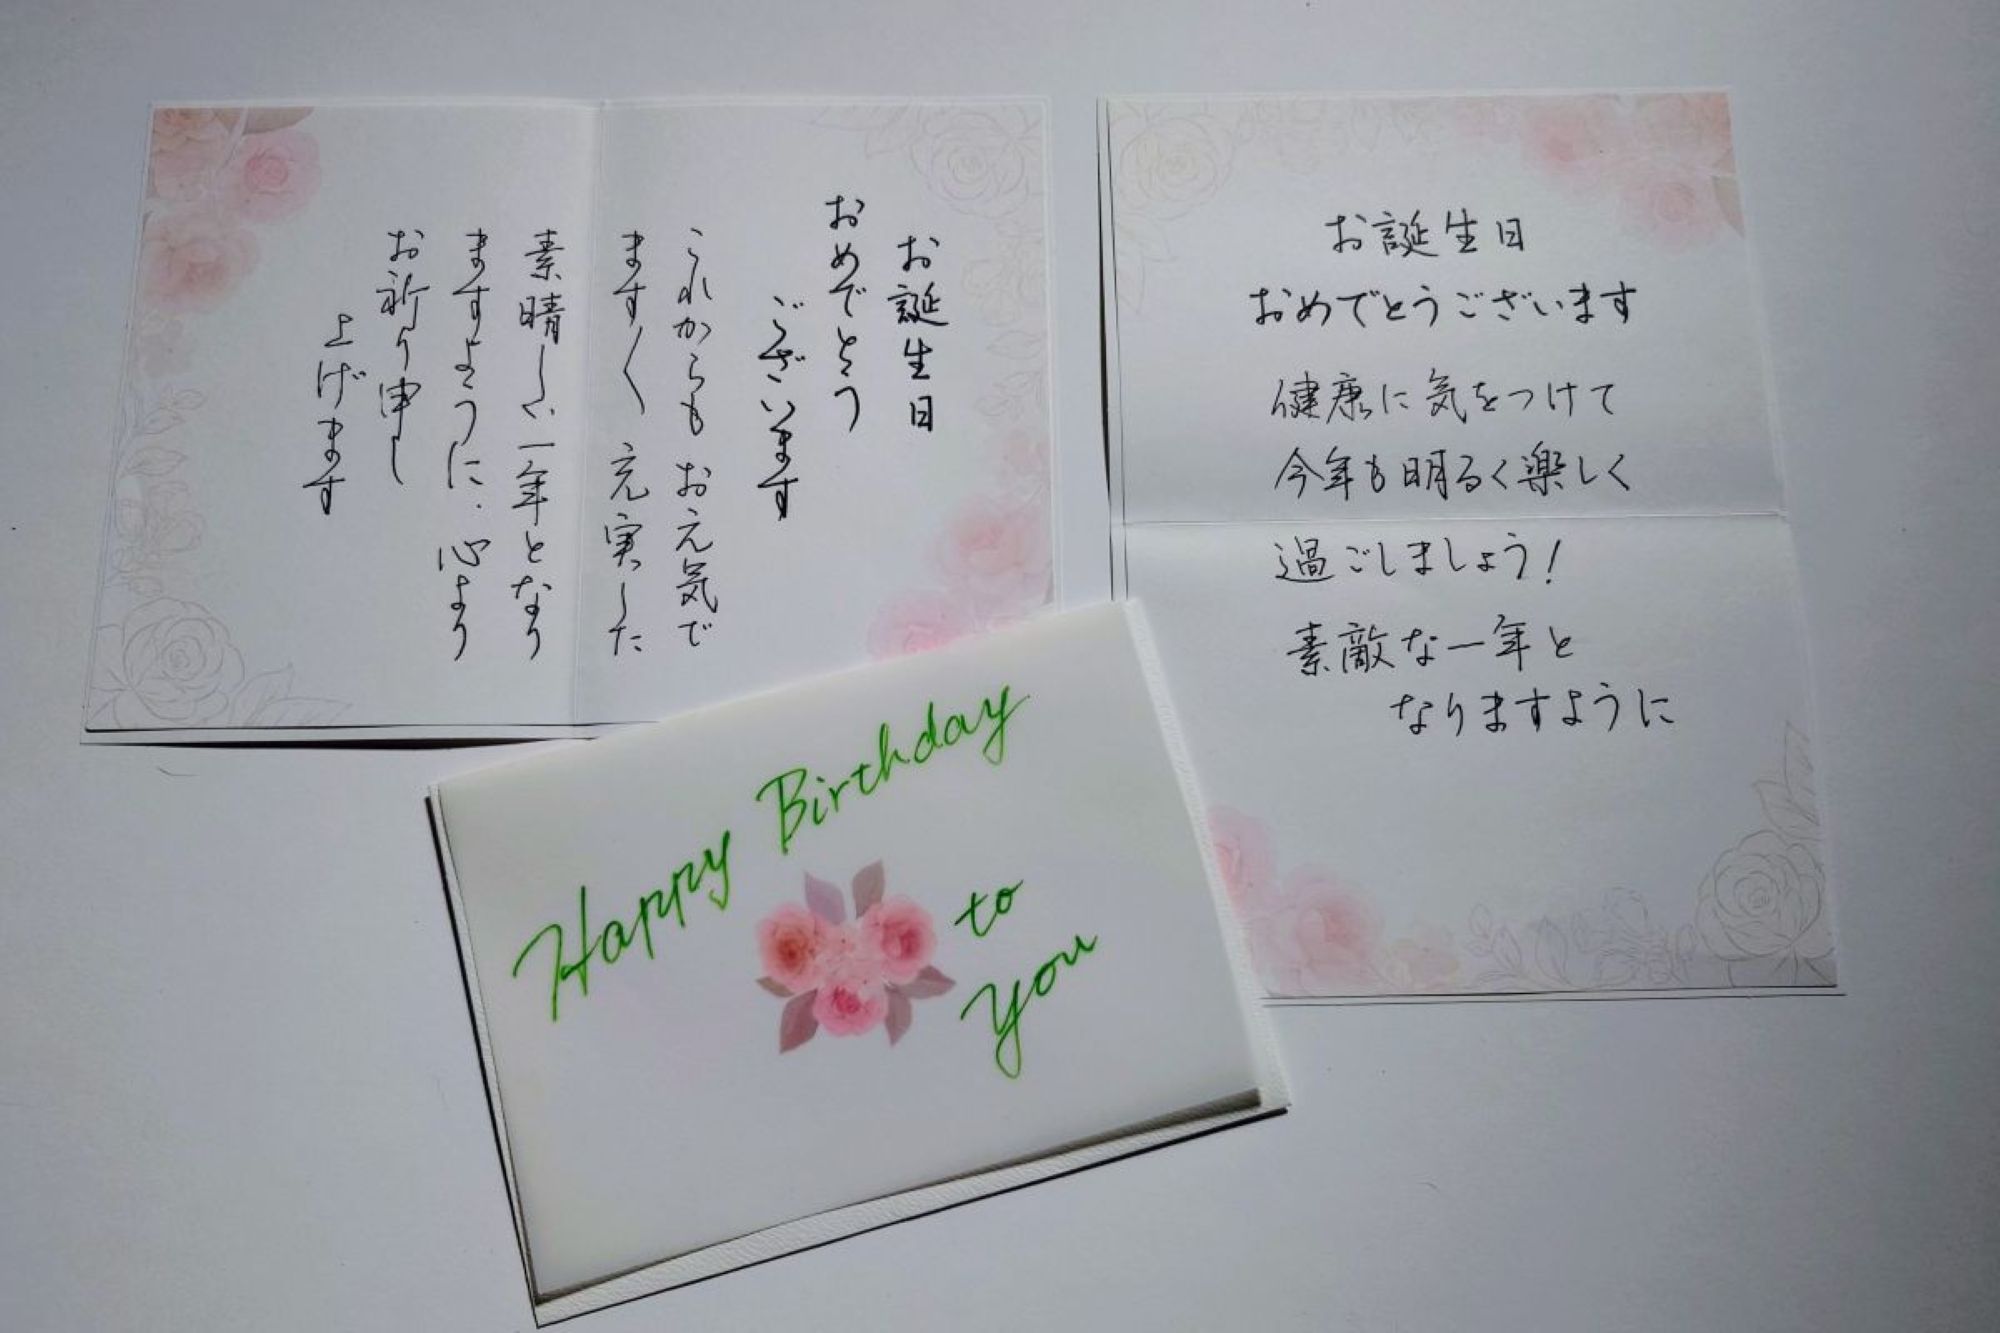 お誕生日
おめでとう
ございます
これからもお元気で
ます〱充実した
素晴しい一年となり
ますように、心より
お祈り申し
上げます
お誕生日
おめでとうございます
健康に気をつけて
今年も明るく楽しく
過ごしましょう!
素敵な一年と
なりますように
Happy Birthday
to
you